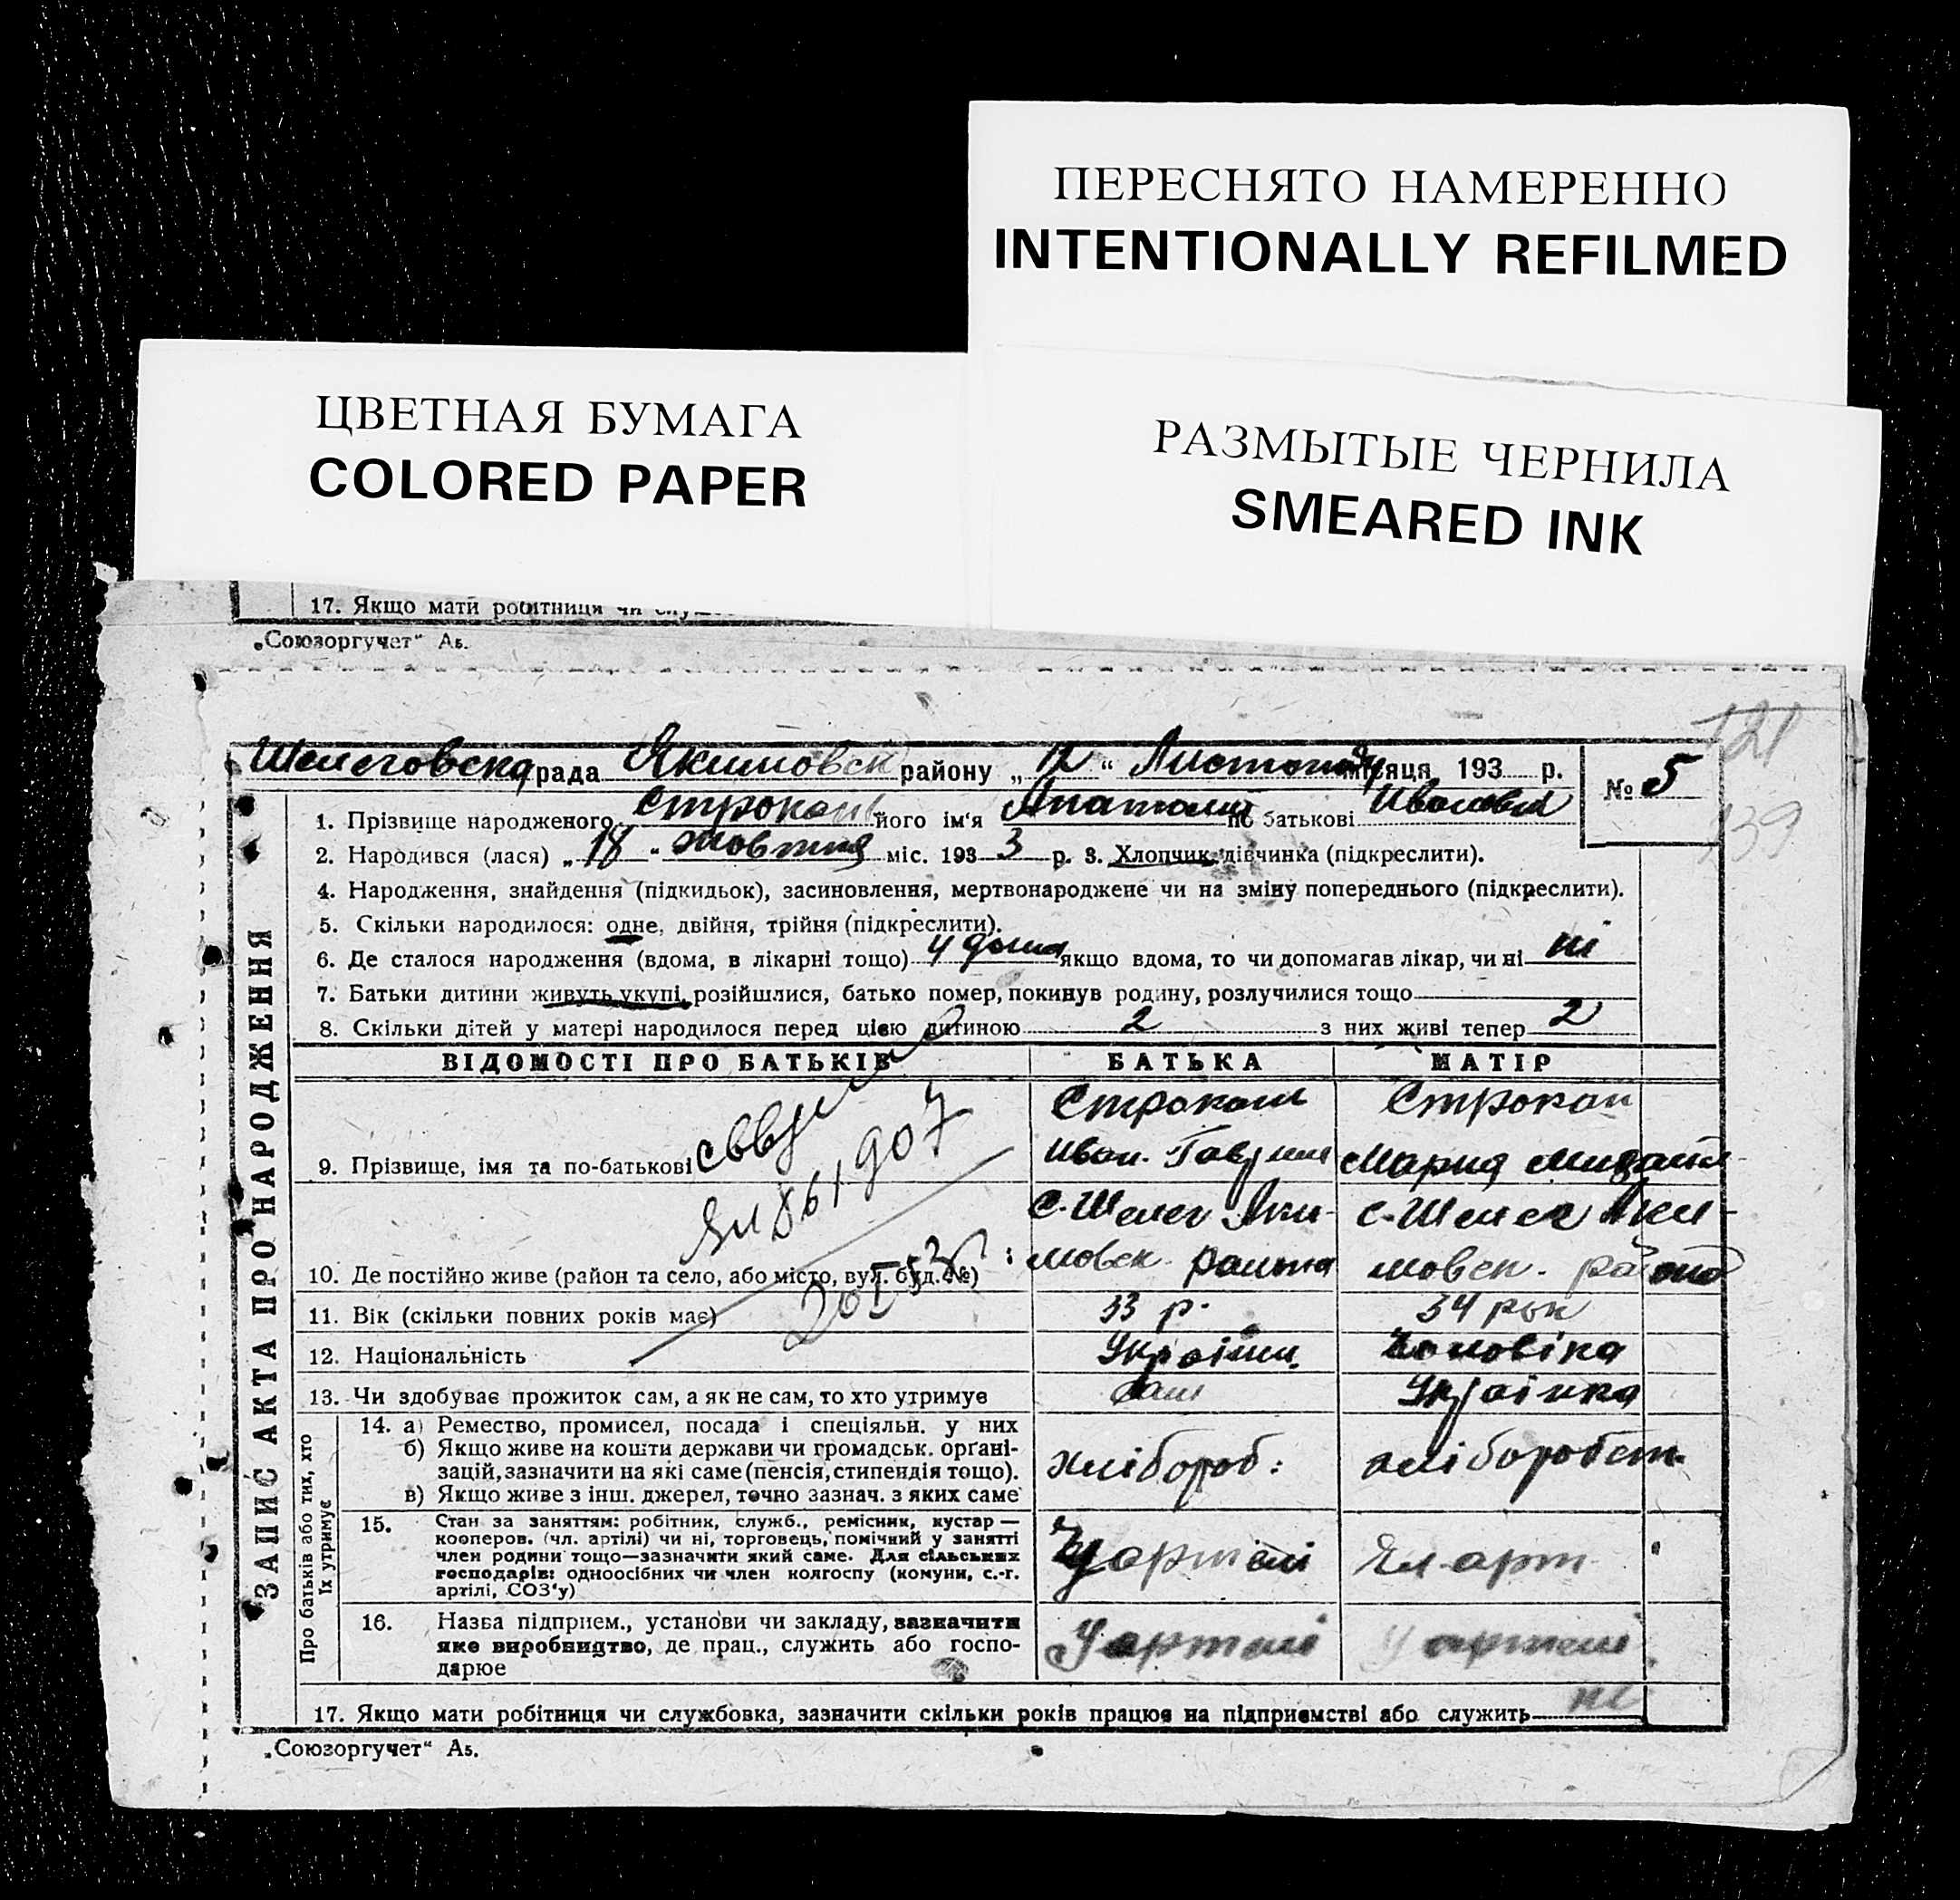 ПЕРЕСНЯТО НАМЕРЕННО
INTENTIONALLY REFILMED
ЦВЕТНАЯ БУМАГА
COLORED PAPER
РАЗМЫТЫЕ ЧЕРНИЛА
SMEARED INK
17. Якщо мати робітниця чи
„Союзоргучет“ А5.
121
Шелеговска рада Якимовск району „12“ Листопаду місяця 193 р. № 5
139
1. Прізвище народженого Строкань його ім'я Анатолий по батькові Иванович
2. Народився (лася) „18“ жовтня міс. 1933 р. 3. Хлопчик, дівчинка (підкреслити).
4. Народження, знайдення (підкидьок), засиновлення, мертвонароджене чи на зміну попереднього (підкреслити).
5. Скільки народилося: одне, двійня, трійня (підкреслити).
6. Де сталося народження (вдома, в лікарні тощо) у дома якщо вдома, то чи допомагав лікар, чи ні ні
7. Батьки дитини живуть укупі, розійшлися, батько помер, покинув родину, розлучилися тощо
8. Скільки дітей у матері народилося перед цією дитиною 2 з них живі тепер 2
ЗАПИС АКТА ПРО НАРОДЖЕННЯ
ВІДОМОСТІ ПРО БАТЬКІВ БАТЬКА МАТІР
9. Прізвище, імя та по-батькові Строкан Иван. Гаврил Строкан Мария Михайл
861907
10. Де постійно живе (район та село, або місто, вул. буд. №) с. Шелег Яки-мовск. района с. Шелег Яки-мовск. района
20 I 53
11. Вік (скільки повних років має) 33 р. 34 рок
12. Національність Україн. Чоловіка
13. Чи здобуває прожиток сам, а як не сам, то хто утримує сам Українка
Про батьків або тих, хто їх утримує
14. а) Ремество, промисел, посада і спеціяльн. у них
б) Якщо живе на кошти держави чи громадськ. орґані-
зацій, зазначити на які саме (пенсія, стипендія тощо).
в) Якщо живе з інш. джерел, точно зазнач. з яких саме
хлібороб: хліборобст.
15. Стан за заняттям: робітник, служб., ремісник, кустар —
кооперов. (чл. артілі) чи ні, торговець, помічний у занятті
член родини тощо—зазначити який саме. Для сільських
господарів: одноосібних чи член колгоспу (комуни, с.-г.
артілі, СОЗ'у)
У артелі Чл. арт.
16. Назва підприєм., установи чи закладу, зазначити
яке виробництво, де прац., служить або госпо-
дарює
У артелі У артелі
17. Якщо мати робітниця чи службовка, зазначити скільки років працює на підприємстві або служить ні
„Союзоргучет“ А5.